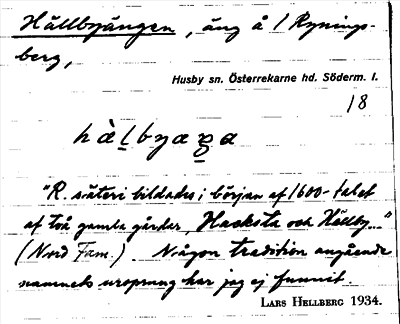 Hällbyängen, äng å / Rynings-
berg,
Husby sn. Österrekarne hd. Söderm. l.
18
hàlbyaŋa
"R. säteri bildades i början af 1600-talet
af två gamla gårdar, Hacksta och Hällby..."
(Nord Fam.) Någon tradition angående
namnets ursprung har jag ej funnit.
LARS HELLBERG 1934.